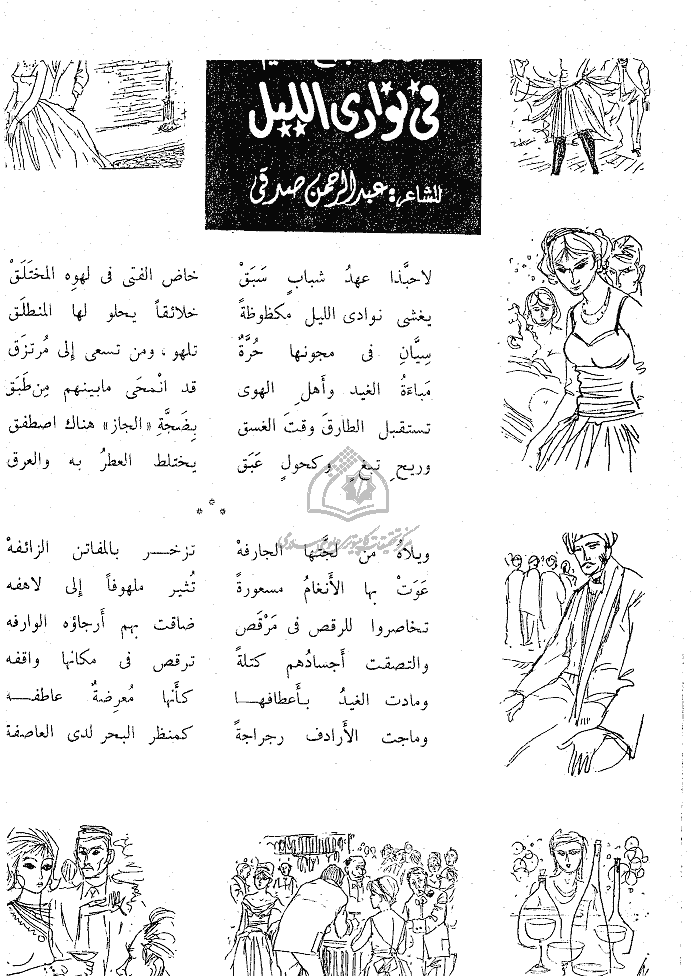 في نوادى الليل
للشاعر: عبد الرحمن صدقى
لاحبَّذا عهدُ شبابٍ سَبَقْ خاض الفتى فى لهوِه المختَلَقْ
يغشى نوادى الليل مكظوظةً خلائقاً يحلو لها المنطلَق
سِيَّانِ فى مجونها حُرَّةٌ تلهو، ومن تسعى إلى مُرتزَق
مَباءَةُ الغيد وأهلِ الهوى قد انْمحَى مابينهم مِن طَبَق
تستقبل الطارقَ وقتَ الغسق بِضَجَّةِ «الجاز» هناك اصطفق
وريحِ تبغٍ وكحولٍ عَبَق يختلط العطرُ به والعرق
* * *
ويلاهُ من لجَّتها الجارفهْ تزخـر بالمفاتن الزائفهْ
عَوَتْ بها الأَنغامُ مسعورةً تُثير ملهوفاً إلى لاهفه
تخاصروا للرقص فى مَرْقَص ضاقت بهم أَرجاؤه الوارفه
والتصقت أَجسادُهم كتلةً ترقص فى مكانها واقفه
ومادت الغيدُ بأَعطافهـا كأَنها مُعرِضةٌ عاطفـه
وماجت الأَرادف رجراجةً كمنظر البحر لدى العاصفة